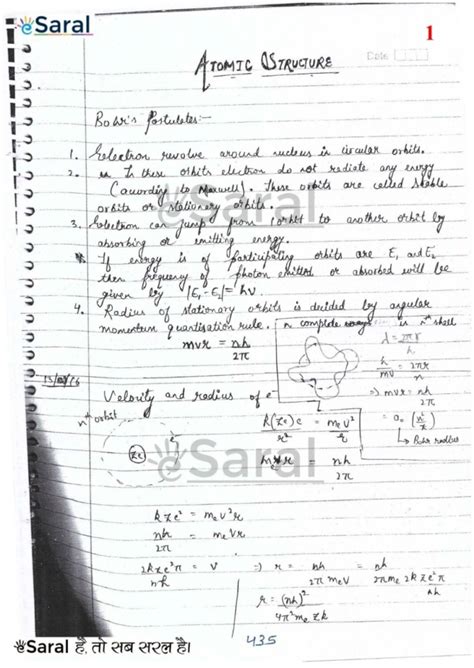 eSaral
1
ATOMIC STRUCTURE
Date
Bohr's Postulates:-
1. Electron revolve around nucleus in circular orbits.
2. In these orbits electron do not radiate any energy
(according to Maxwell). These orbits are called stable
orbits or stationery orbits.
3. Electron can jump from 1 orbit to another orbit by
absorbing or emitting energy.
* If energy is of participating orbits are E₁ and E₂
then frequency of photon emitted or absorbed will be
given by |E₁-E₂| = hν
4. Radius of stationary orbits is decided by angular
momentum quantisation rule.
n complete in nth shell
mvr = nh/2π
h/mv = 2πr/n
⇒ mvr = nh/2π
Velocity and radius of e⁻
nth orbit
Ze
k(Ze)e/r² = mₑv²/r
= a₀ (n²/z)
↳ Bohr radius
= nh/2π
eSaral
kze² = mₑv²r
nh/2π = mₑvr
2kze²π/nh = v ⇒ r = nh/2πmₑv = nh/2πmₑ 2kze²π/nh
r = (nh)²/4π²mₑzk
eSaral है, तो सब सरल है।
435